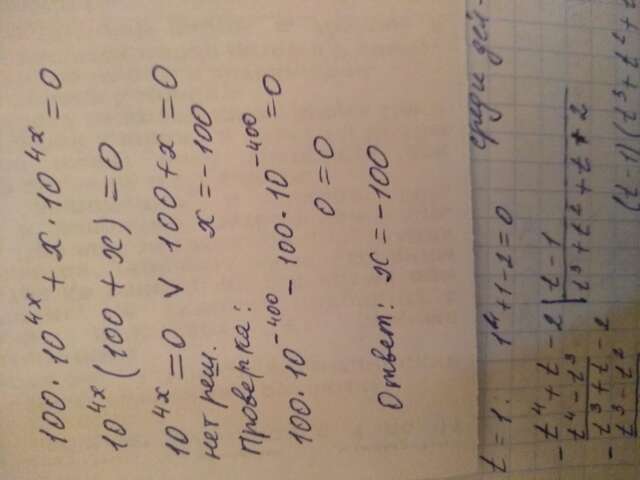 100·10^4x + x·10^4x = 0
10^4x (100 + x) = 0
10^4x = 0 ∨ 100 + x = 0
нет реш. x = -100
Проверка:
100·10^-400 - 100·10^-400 = 0
0 = 0
Ответ: x = -100
среди дей-
t = 1: 1^4 + 1 - 2 = 0
- t^4 + t - 2 | t - 1
t^4 - t^3 | t^3 + t^2 + t + 2
- t^3 + t - 2
t^3 - t^2
(t - 1)(t^3 + t^2 +